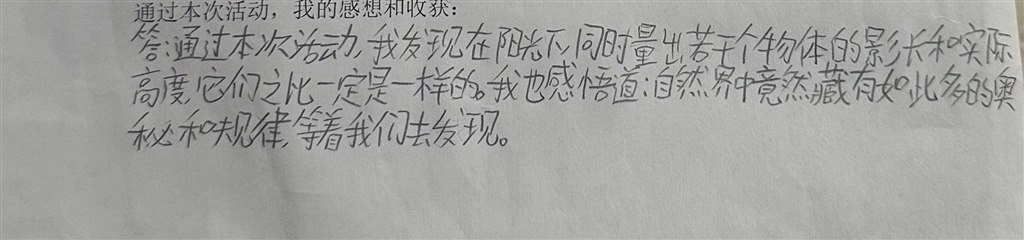 通过本次活动，我的感想和收获：
答：通过本次活动，我发现在阳光下，同时量出若干个物体的影长和实际
高度，它们之比一定是一样的。我也感悟道：自然界中竟然藏有如此多的奥
秘和规律，等着我们去发现。